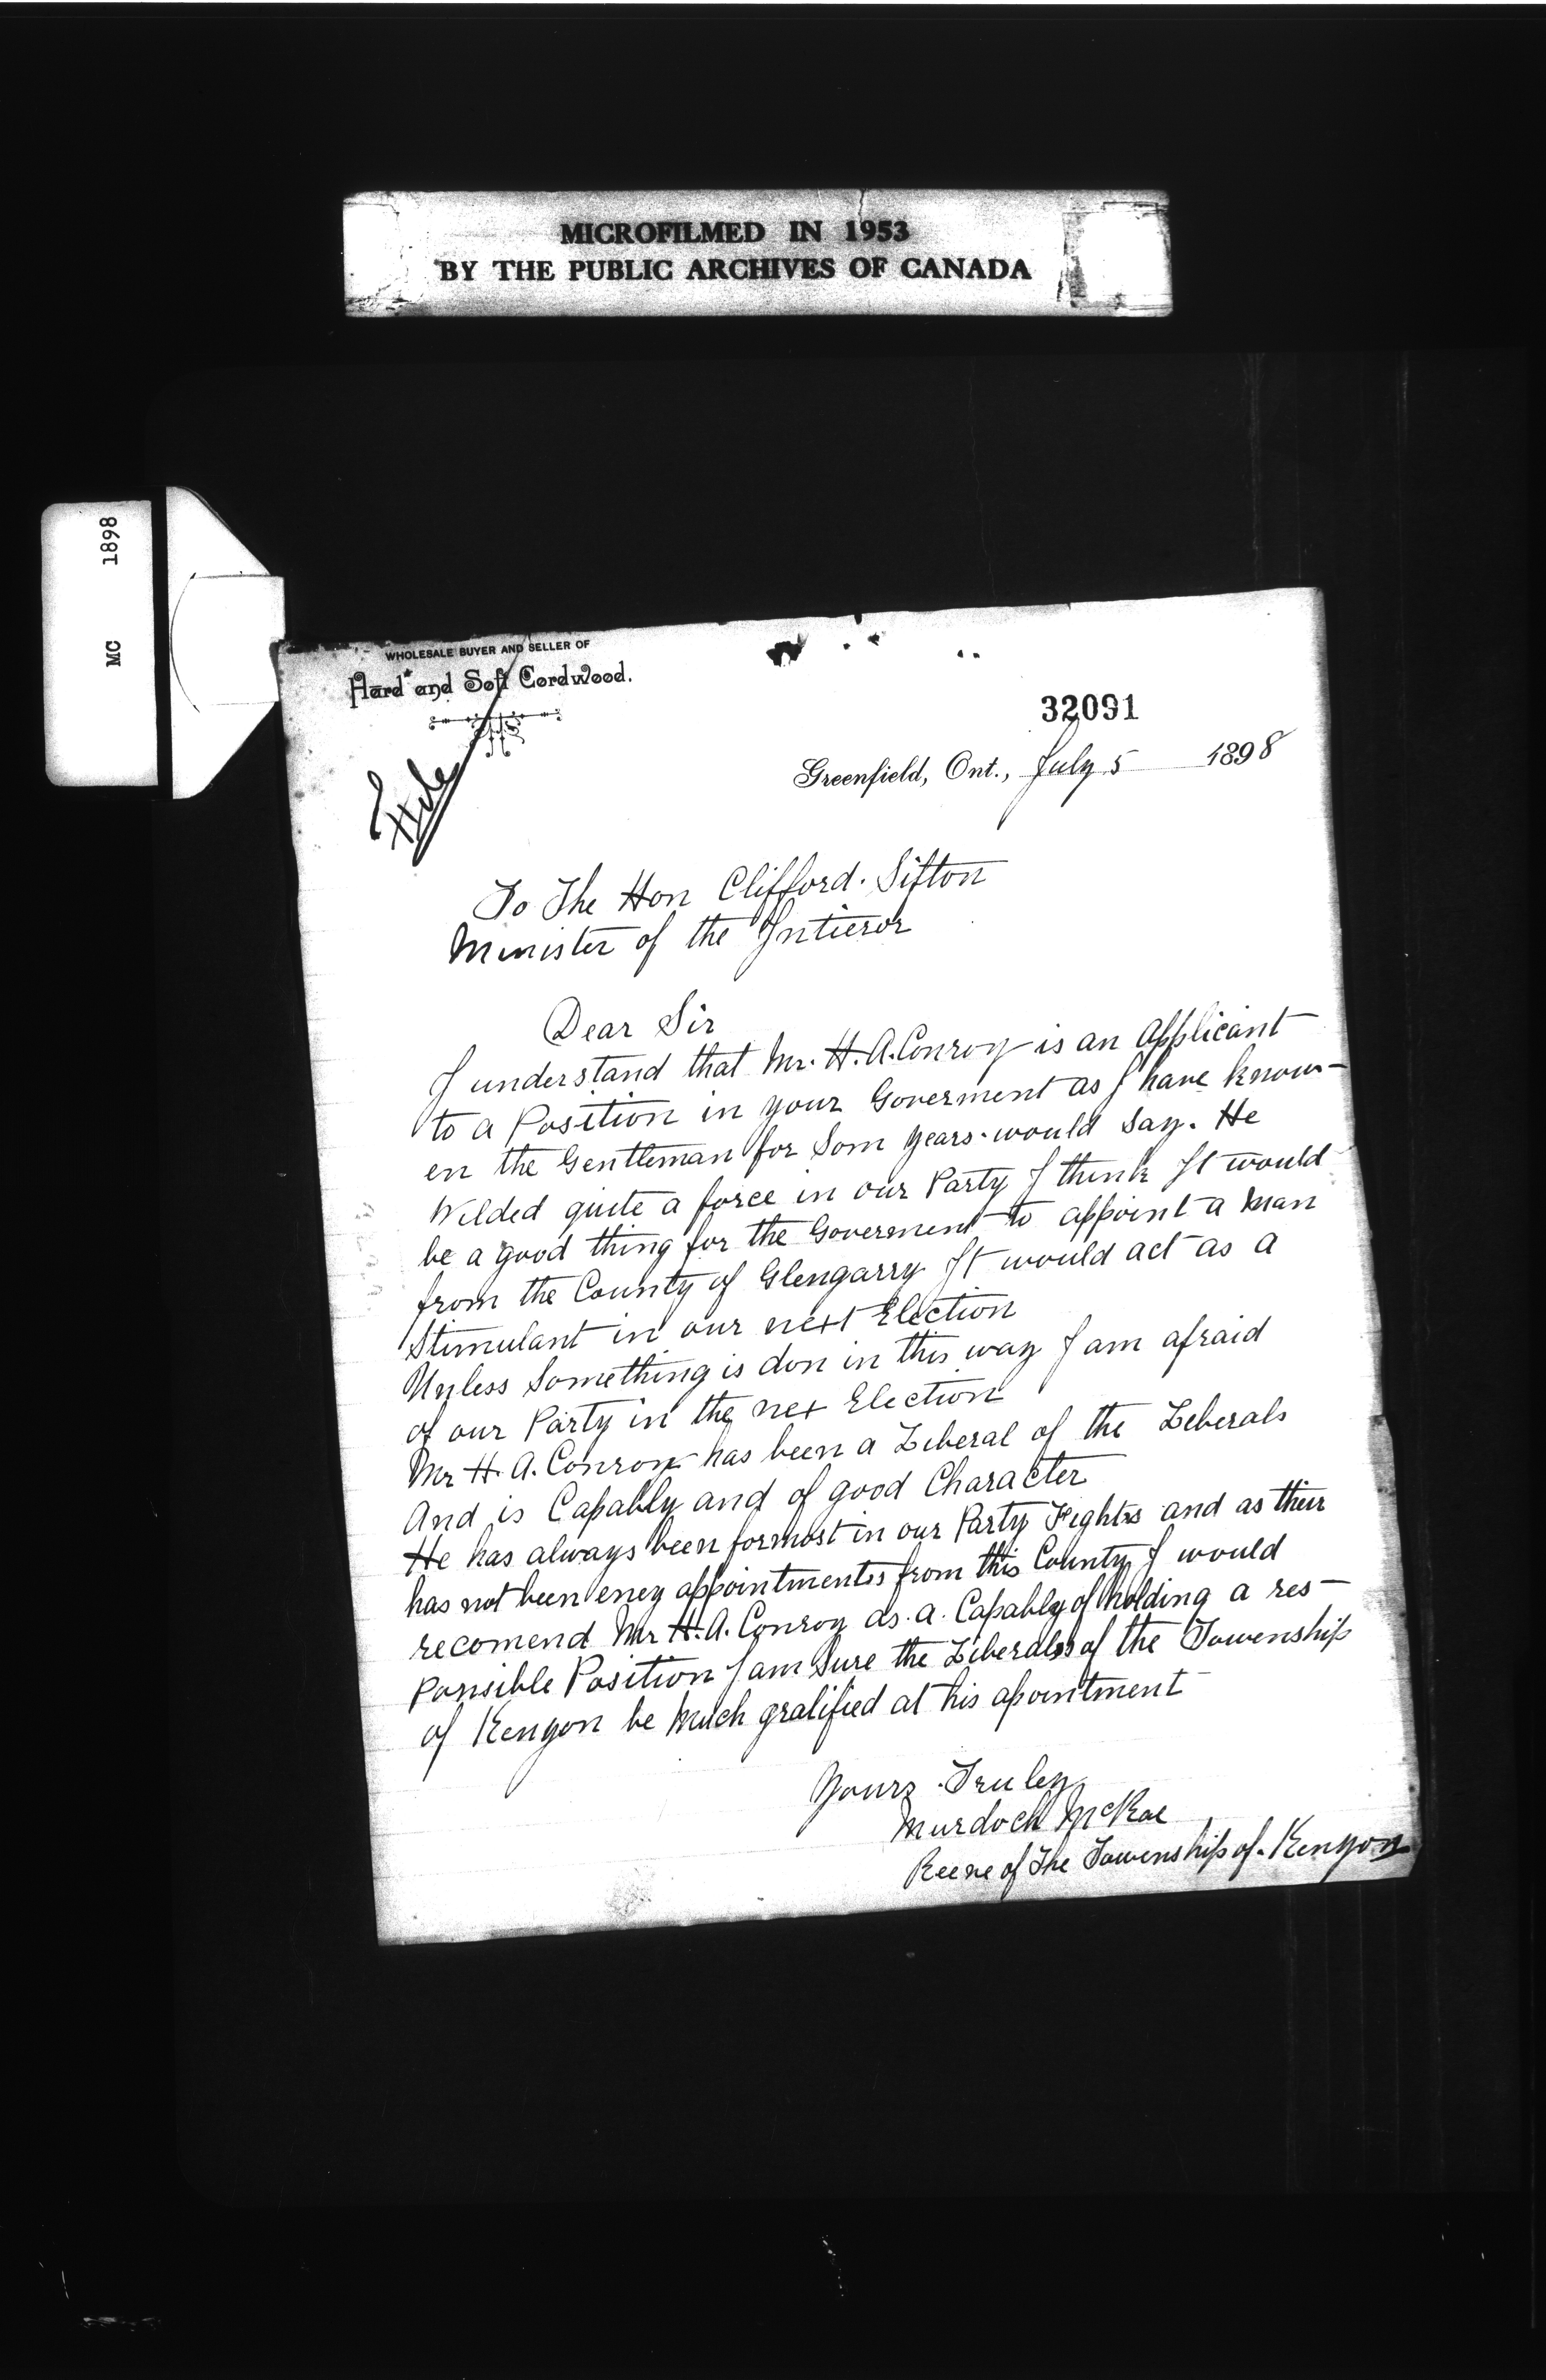 MICROFILMED IN 1953
BY THE PUBLIC ARCHIVES OF CANADA
MC 1898
WHOLESALE BUYER AND SELLER OF
Hard and Soft Cordwood.
32091
Greenfield, Ont., July 5 1898
File
To The Hon Clifford. Sifton
Minister of the Intieror
Dear Sir
I understand that Mr. H. A. Conroy is an Applicant
to a Position in your Goverment as I have know-
en the Gentleman for Som years. would Say. He
Wilded quite a force in our Party I think It would
be a good thing for the Goverment to appoint a Man
from the County of Glengarry It would act as a
Stimulant in our next Election
Unless Something is don in this way I am afraid
of our Party in the nex Election
Mr H. A. Conroy has been a Liberal of the Leberals
And is Capably and of good Character
He has always been formost in our Party Fights and as their
has not been eney appointments from this County I would
recomend Mr H. A. Conroy as. a. Capably of holding a res-
ponsible Position I am Sure the Liberals of the Township
of Kenyon be Much gratified at his apointment
Yours Truley
Murdoch McRae
Reeve of The Township of. Kenyon